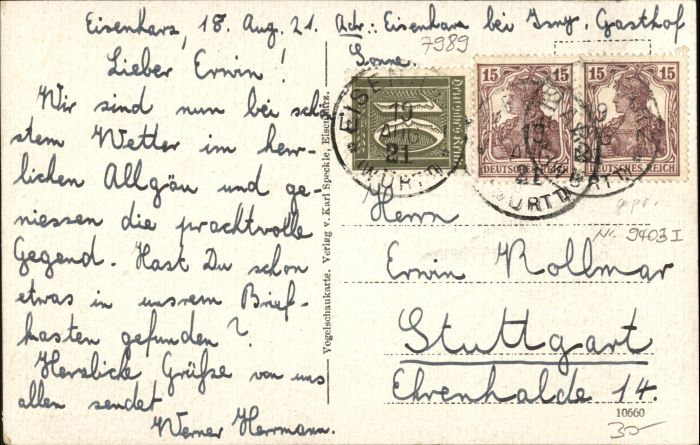 Eisenharz, 18. Aug. 21. Adr.: Eisenharz bei Isny. Gasthof
Sonne.
7989
Lieber Erwin!
Wir sind nun bei schön-
stem Wetter im herr-
lichen Allgäu und ge-
niessen die prachtvolle
Gegend. Hast Du schon
etwas in unsrem Brief-
kasten gefunden?
Herzliche Grüße von uns
allen sendet
Werner Herrmann.
Vogelschaukarte. Verlag v. Karl Speckle, Eisenharz.
10
Deutsches Reich
15 15
DEUTSCHES REICH
15 15
DEUTSCHES REICH
19 AUG 21
WÜRTT.
gepr.
Nr. 9403 I
Herrn
Erwin Rollmar
Stuttgart
Ehrenhalde 14.
10660
30